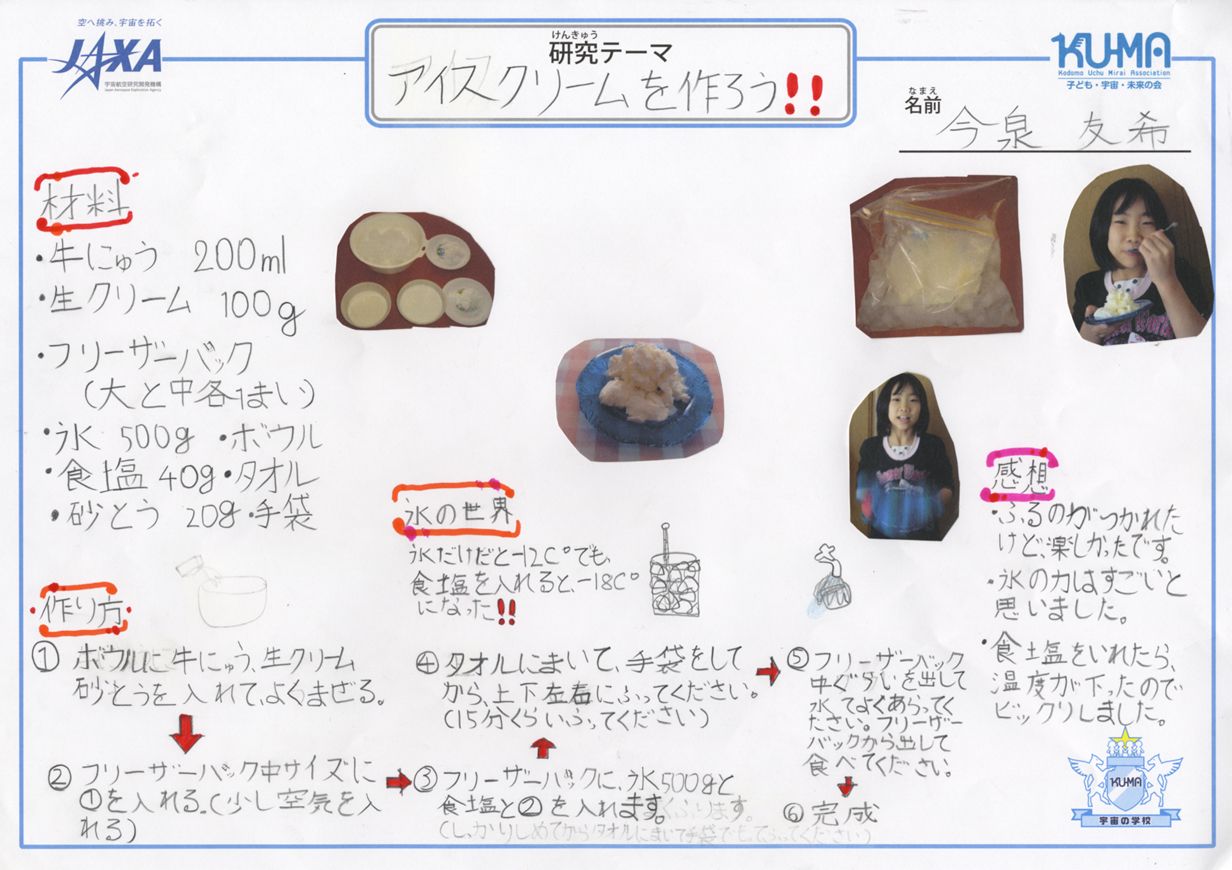 空へ挑み、宇宙を拓く
JAXA
宇宙航空研究開発機構
Japan Aerospace Exploration Agency
けんきゅう
研究テーマ
アイスクリームを作ろう!!
KU-MA
Kodomo Uchu Mirai Association
子ども・宇宙・未来の会
なまえ
名前
今泉 友希
材料
・牛にゅう 200ml
・生クリーム 100g
・フリーザーバック
(大と中各1まい)
・氷 500g ・ボウル
・食塩 40g ・タオル
・砂とう 20g ・手袋
氷の世界
氷だけだと-12C°でも、
食塩を入れると、-18C°
になった!!
感想
・ふるのがつかれた
けど、楽しかったです。
・氷の力はすごいと
思いました。
・食塩をいれたら、
温度が下ったので
ビックリしました。
作り方
① ボウルに牛にゅう、生クリーム
砂とうを入れて、よくまぜる。
② フリーザーバック中サイズに
①を入れる。(少し空気を入
れる)
③ フリーザーバックに、氷500gと
食塩と②を入れます。
(しっかりしめてからタオルにまいて手袋でもってふってください)
④ タオルにまいて、手袋をして
から、上下左右にふってください。
(15分くらいふってください)
⑤ フリーザーバック
中ぐらいを出して
水でよくあらってく
ださい。フリーザー
バックから出して
食べてください。
⑥ 完成
KUMA
宇宙の学校